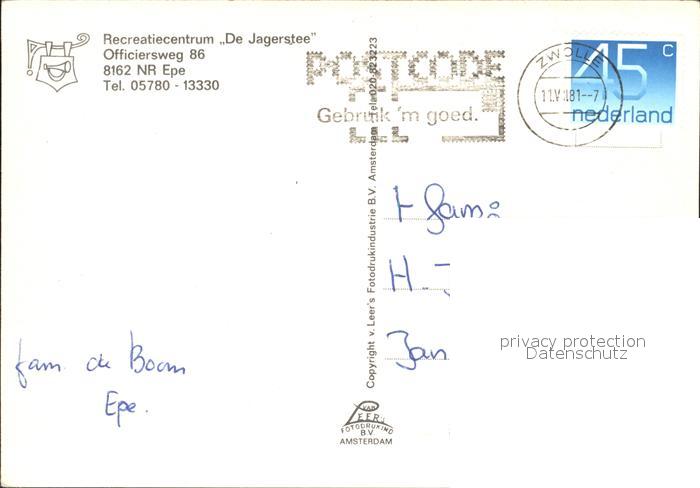 Recreatiecentrum „De Jagerstee"
Officiersweg 86
8162 NR Epe
Tel. 05780 - 13330
POSTCODE
Gebruik 'm goed.
ZWOLLE
45 c
nederland
Copyright v. Leer's Fotodrukindustrie B.V. Amsterdam Tel. 020-823223
fam.
H
Jan
privacy protection
Datenschutz
fam. de Boom
Epe.
VAN
LEER'S
FOTODRUKIND
B.V.
AMSTERDAM